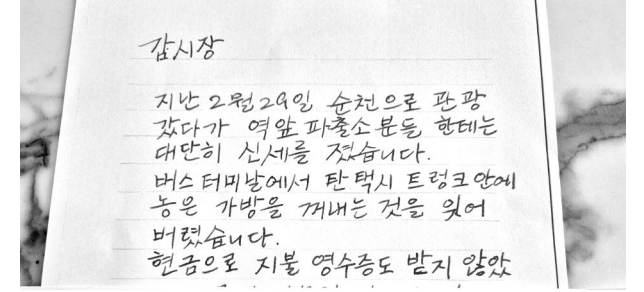 감시장
지난 2월29일 순천으로 관광
갔다가 역앞 파출소분들 한테는
대단히 신세를 졌습니다.
버스터미날에서 탄 택시 트렁크안에
놓은 가방을 꺼내는 것을 잊어
버렸습니다.
현금으로 지불 영수증도 받지 않았